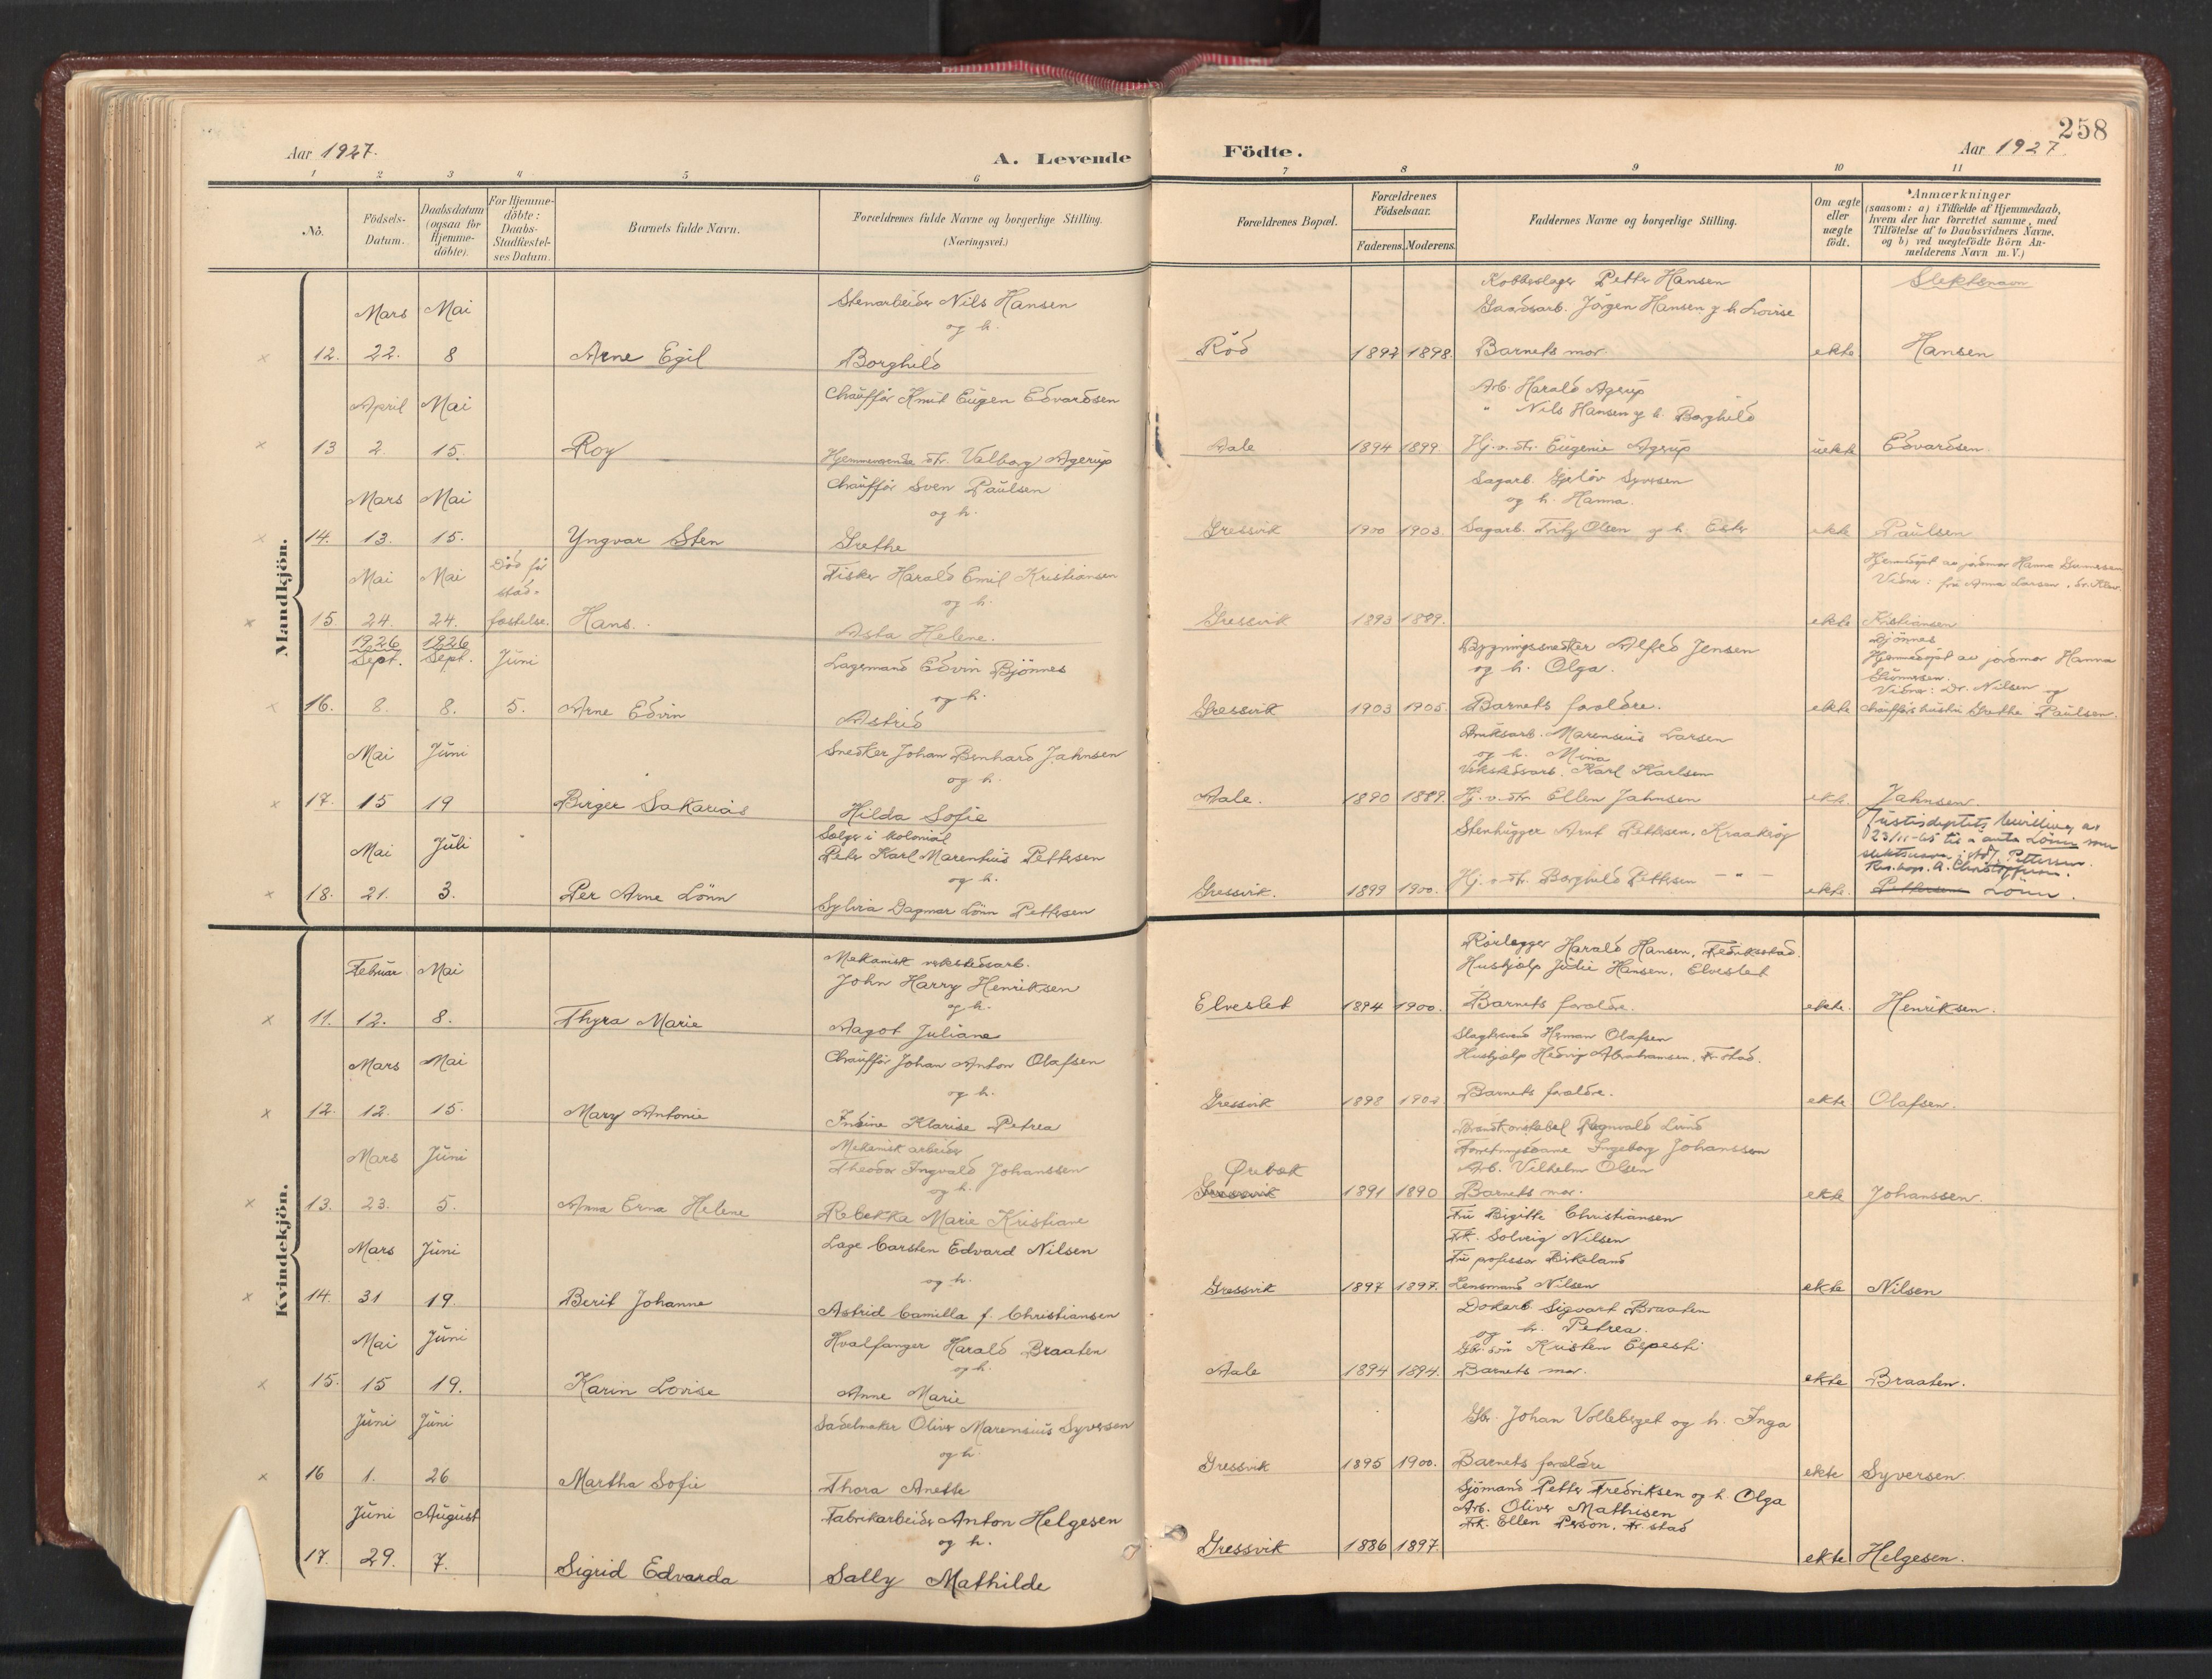 258
Aar 1927.
A. Levende Födte.
Aar 1927.
1 2 3 4 5 6 7 8 9 10 11
No.
Födsels-Datum.
Daabsdatum (ogsaa for Hjemme-döbte).
For Hjemme-döbte: Daabs-Stadfæstel-ses Datum.
Barnets fulde Navn.
Forældrenes fulde Navne og borgerlige Stilling.
(Næringsvei.)
Forældrenes Bopæl.
Forældrenes Födselsaar.
Faderens. Moderens.
Faddernes Navne og borgerlige Stilling.
Om ægte eller uægte födt.
Anmærkninger
(saasom: a) i Tilfælde af Hjemmedaab, hvem der har forrettet samme, med Tilföielse af to Daabsvidners Navne, og b) ved uægtefödte Börn An-melderens Navn m. V.)
Mandkjön.
Slektsnavn
12. Mars 22. Mai 8 Arne Egil
Stenarbeider Nils Hansen
og h.
Borghild
Röd 1892 1898.
Kobberslager Petter Hansen
Jörgen Hansen og h. Lovise
Barnets mor.
ekte Hansen
13 April 2. Mai 15. Roy
Chaufför Knut Eugen Edvardsen
Hjemmeværende dtr. Valborg Agerup
Aale 1894 1899.
Arb. Harald Agerup
" Nils Hansen og h. Borghild
Hj.v. dtr. Eugenie Agerup
uekte Edvardsen.
14. Mars 13. Mai 15. Yngvar Sten
Chaufför Sven Paulsen
og h.
Grethe
Gressvik 1900 1903.
Sagarb. Syversen
og h. Hanna.
Sagarb. Fritz Olsen og h. Ester
ekte Paulsen
15. Mai 24. Mai 24. Död för stad-festelse. Hans.
Fisker Harald Emil Kristiansen
og h.
Asta Helene.
Gressvik 1893 1899.
ekte Kristiansen
Hjemmedöpt av jordmor Hanna Gunnersen
Vidner: fru Anna Larsen,
16. 1926 Sept. 8. 1926 Sept. 8. Juni 5. Arne Edvin
Lagermand Edvin Bjönnes
og h.
Astrid
Gressvik 1903 1905.
Bygningssnedker Alfred Jensen
og h. Olga.
Barnets foreldre.
ekte Bjönnes
Hjemmedöpt av jordmor Hanna
Gunnersen.
Vidner: Dr. Nilsen og
chaufförs hustru Grethe Paulsen.
17. Mai 15 Juni 19 Birger Sakarias
Snedker Johan Bernhard Jahnsen
og h.
Hilda Sofie
Aale. 1890 1889.
Bruksarb. Marensius Larsen
og h. Mina
Verkstedsarb. Karl Karlsen
Hj.v. dtr. Ellen Jahnsen
ekte. Jahnsen.
18. Mai 21. Juli 3. Per Arne Lönn
Selger i kolonial
Peter Karl Marentius Pettersen
og h.
Sylvia Dagmar Lönn Pettersen
Gressvik. 1899 1900.
Stenhugger Arnt Pettersen, Kraakeröy
Hj.v. dtr. Borghild Pettersen — " —
ekte.
Justisdeptets bevilling av
23/11-65 til å anta Lönn som
slektsnavn, Pettersen.
Res.kap. A. Christoffersen.
Pettersen Lönn.
Kvindekjön.
11. Februar 12. Mai 8. Thyra Marie
Mekanisk verkstedsarb.
John Harry Henriksen
og h.
Aagot Juliane
Elveslet 1894 1900.
Rörlegger Harald Hansen, Fredrikstad.
Hushjelp Julie Hansen, Elveslet
Barnets foreldre.
ekte. Henriksen.
12. Mars 12. Mai 15. Mary Antonie
Chaufför Johan Anton Olafsen
og h.
Indine Klarise Petrea
Gressvik 1898
Slagtersvend Herman Olafsen
Hushjelp Hedvig Abrahamsen, Fr.stad.
Barnets foreldre.
ekte Olafsen.
13. Mars 23. Juni 5. Anna Erna Helene
Mekanisk arbeider
Theodor Ingvald Johanssen
og h.
Rebekka Marie Kristiane
Örebæk
Gressvik 1891 1890
Brandkonstabel Ragnvald Lund
Forretningsdame Ingeborg Johanssen
Arb. Vilhelm Olsen
Barnets mor.
ekte Johanssen.
14. Mars 31 Juni 19. Berit Johanne
Læge Carsten Edvard Nilsen
og h.
Astrid Camilla f. Christiansen
Gressvik 1897 1897.
Fru Birgitte Christiansen
Frk. Solveig Nilsen
Fru professor Birkeland
Lensmand Nilsen
ekte Nilsen
15. Mai 15 Juni 19. Karin Lovise
Hvalfanger Harald Braaten
og h.
Anne Marie
Aale 1894 1894.
Dokarb. Sigvart Braaten
og h. Petrea.
Gbr. sön Kristen Espesti
Barnets mor.
ekte Braaten.
16 Juni 1. Juni 26 Martha Sofie
Sadelmaker Oliver Marensius Syversen
og h.
Thora Anette
Gressvik 1895 1900.
Gbr. Johan Volleberget og h. Inga
Barnets foreldre
ekte Syversen.
17. Juni 29. August 7. Sigrid Edvarda
Fabrikarbeider Anton Helgesen
og h.
Sally Mathilde
Gressvik 1886 1897.
Sjömand Petter Fredriksen og h. Olga
Arb. Oliver Mathisen
Frk. Ellen Person, Fr.stad
ekte Helgesen.